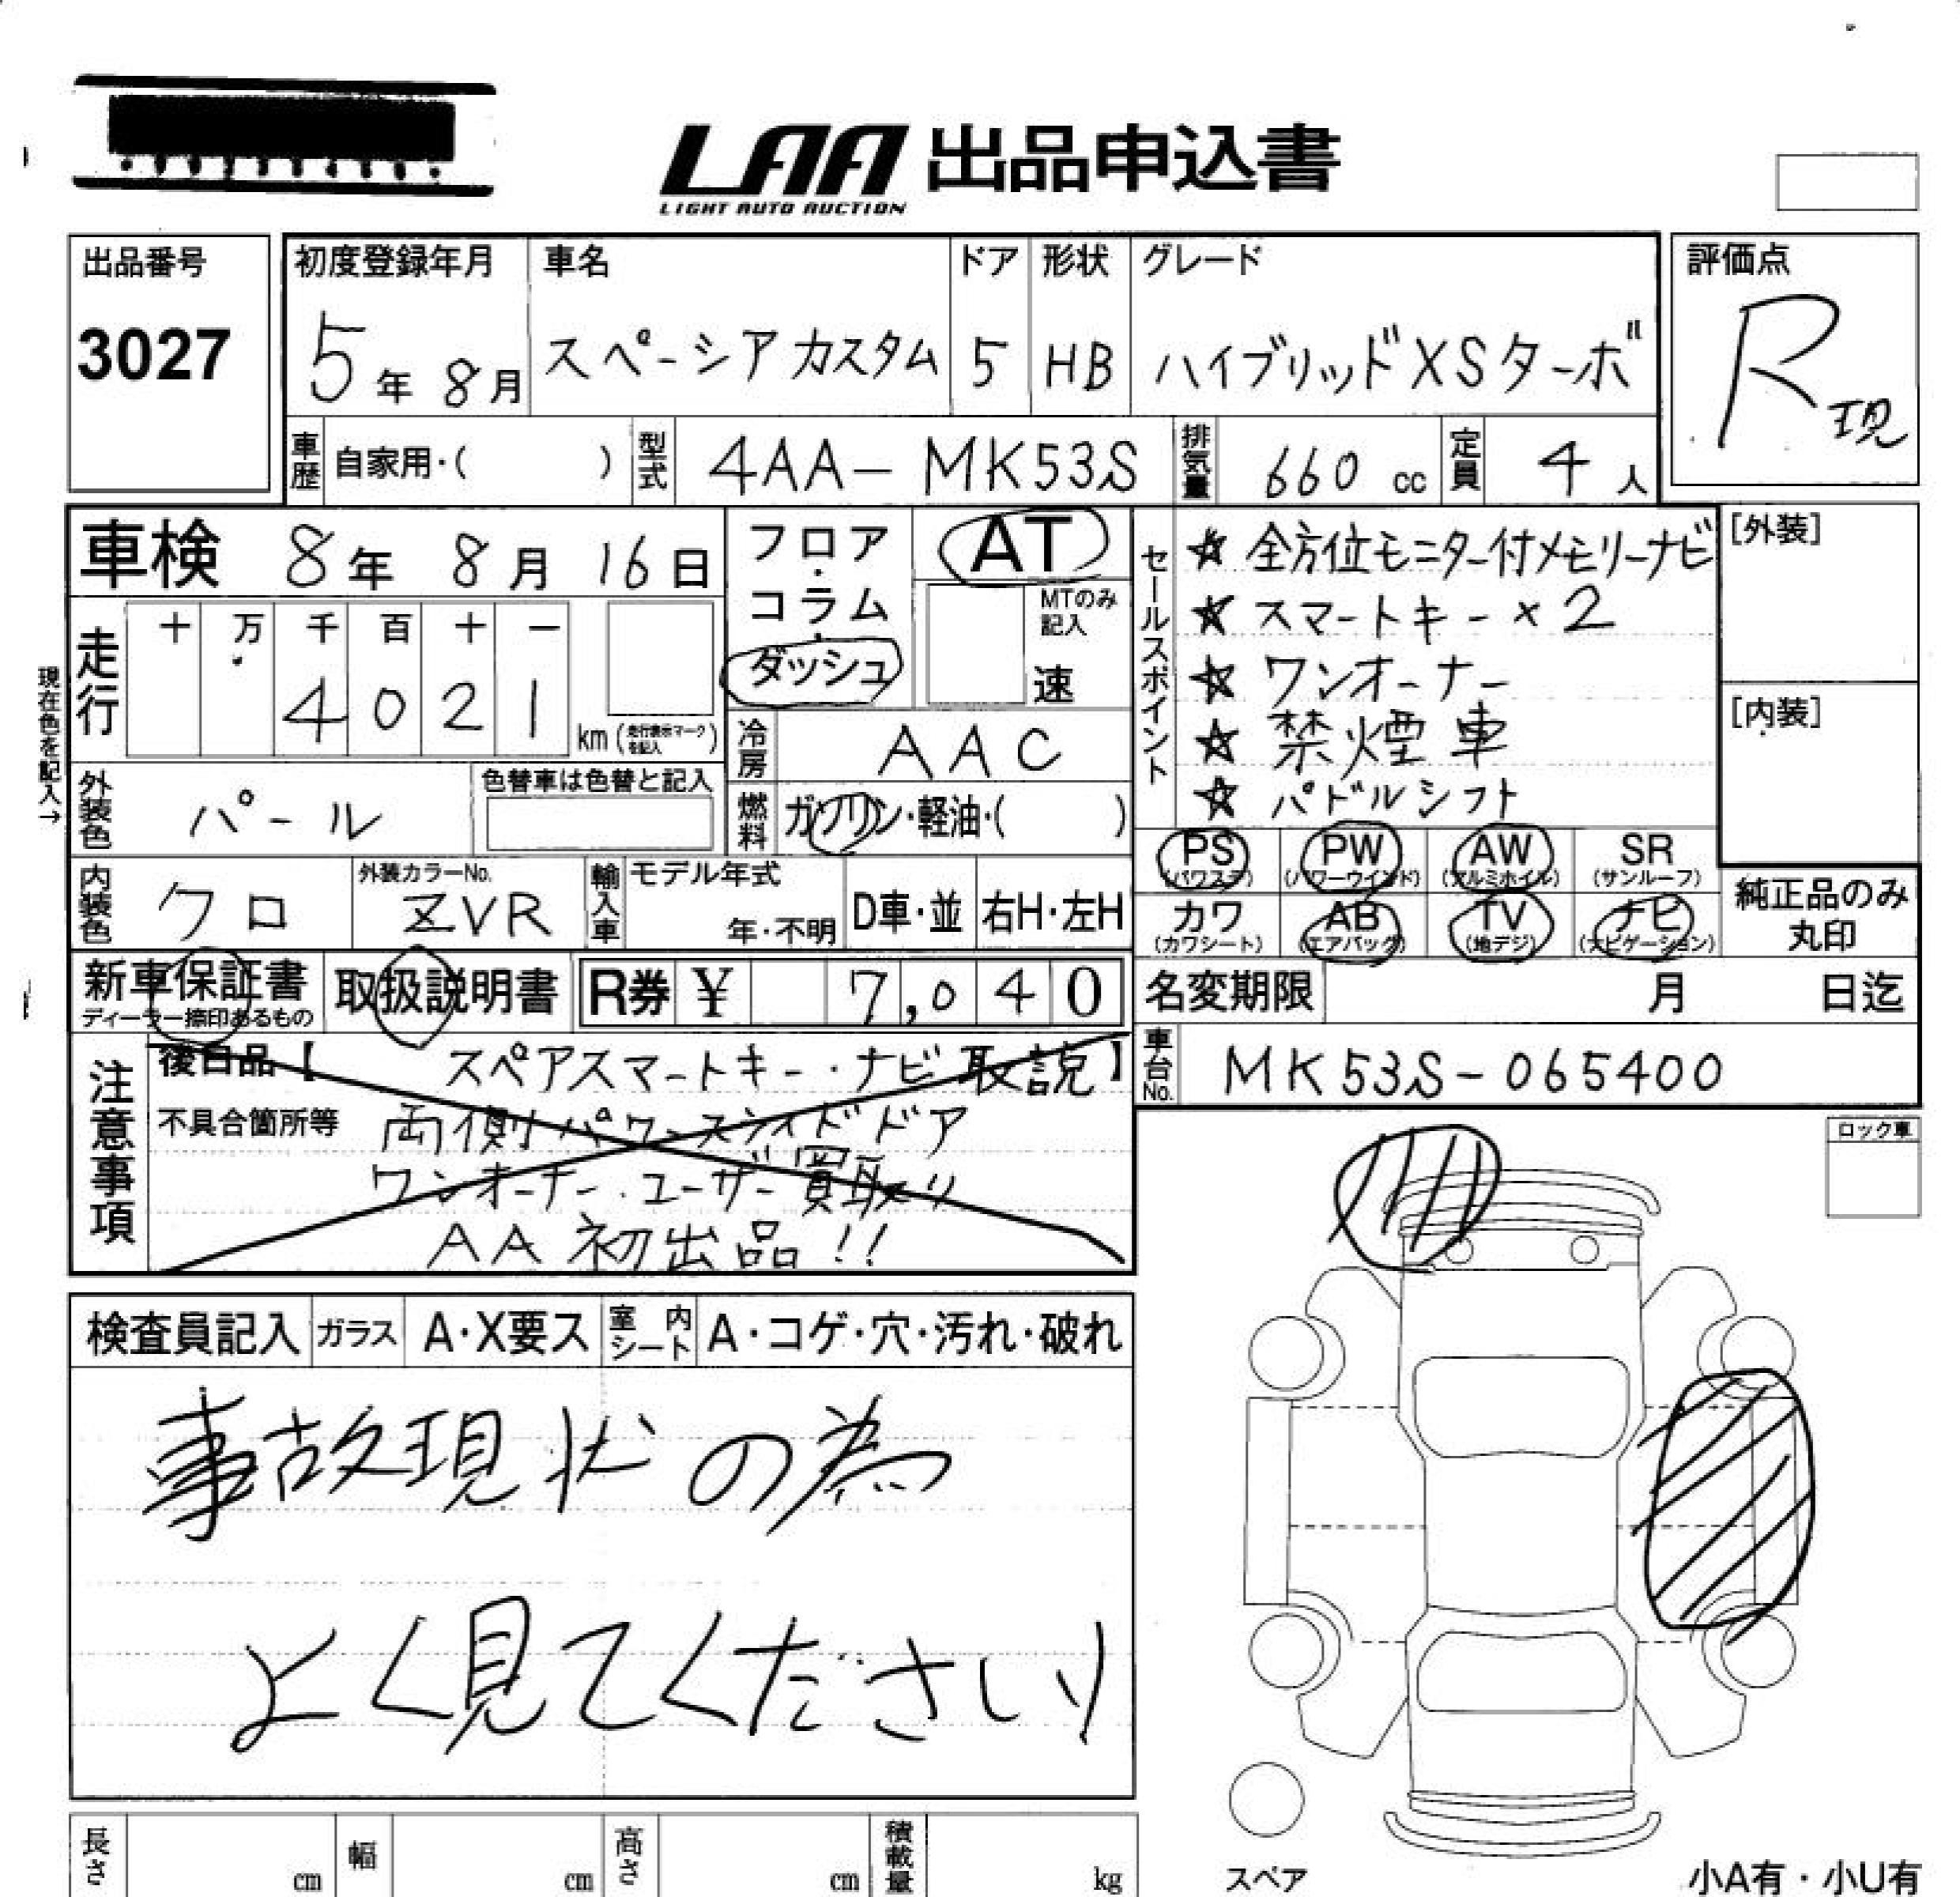 LAA 出品申込書
LIGHT AUTO AUCTION
出品番号
3027
初度登録年月
5年 8月
車名
スペーシアカスタム
ドア
5
形状
HB
グレード
ハイブリッドXSターボ
評価点
R現
車歴 自家用・( )
型式 4AA-MK53S
排気量 660 cc
定員 4 人
車検 8年 8月 16日
走行 十 万 千 百 十 一
4 0 2 1 km (走行表示マークを記入)
現在色を記入→
外装色 パール
色替車は色替と記入
フロア・コラム・ダッシュ
AT
MTのみ記入
速
冷房 AAC
燃料 ガソリン・軽油・( )
セールスポイント
☆ 全方位モニター付メモリーナビ
☆ スマートキー×2
☆ ワンオーナー
☆ 禁煙車
☆ パドルシフト
[外装]
[内装]
内装色 クロ
外装カラーNo. ZVR
輸入車 モデル年式
年・不明
D車・並
右H・左H
PS (パワステ) PW (パワーウインド) AW (アルミホイル) SR (サンルーフ)
カワ (カワシート) AB (エアバッグ) TV (地デジ) ナビ (ナビゲーション)
純正品のみ
丸印
新車保証書
ディーラー捺印あるもの
取扱説明書
R券 ¥ 7,040
名変期限 月 日迄
車台No. MK53S-065400
注意事項
後日品【 スペアスマートキー・ナビ取説】
不具合箇所等 両側パワースライドドア
ワンオーナー・ユーザー買取り
AA初出品!!
ロック車
検査員記入 ガラス A・X要ス 室内シート A・コゲ・穴・汚れ・破れ
事故現状の為
よく見てください
長さ cm 幅 cm 高さ cm 積載量 kg
スペア
小A有・小U有